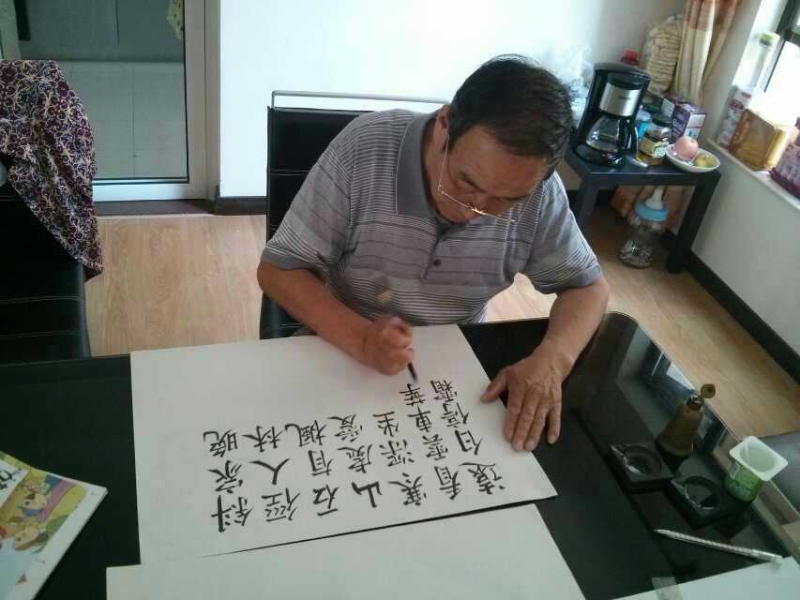 遠看寒山石徑斜
白雲深處有人家
停車坐愛楓林晚
霜葉